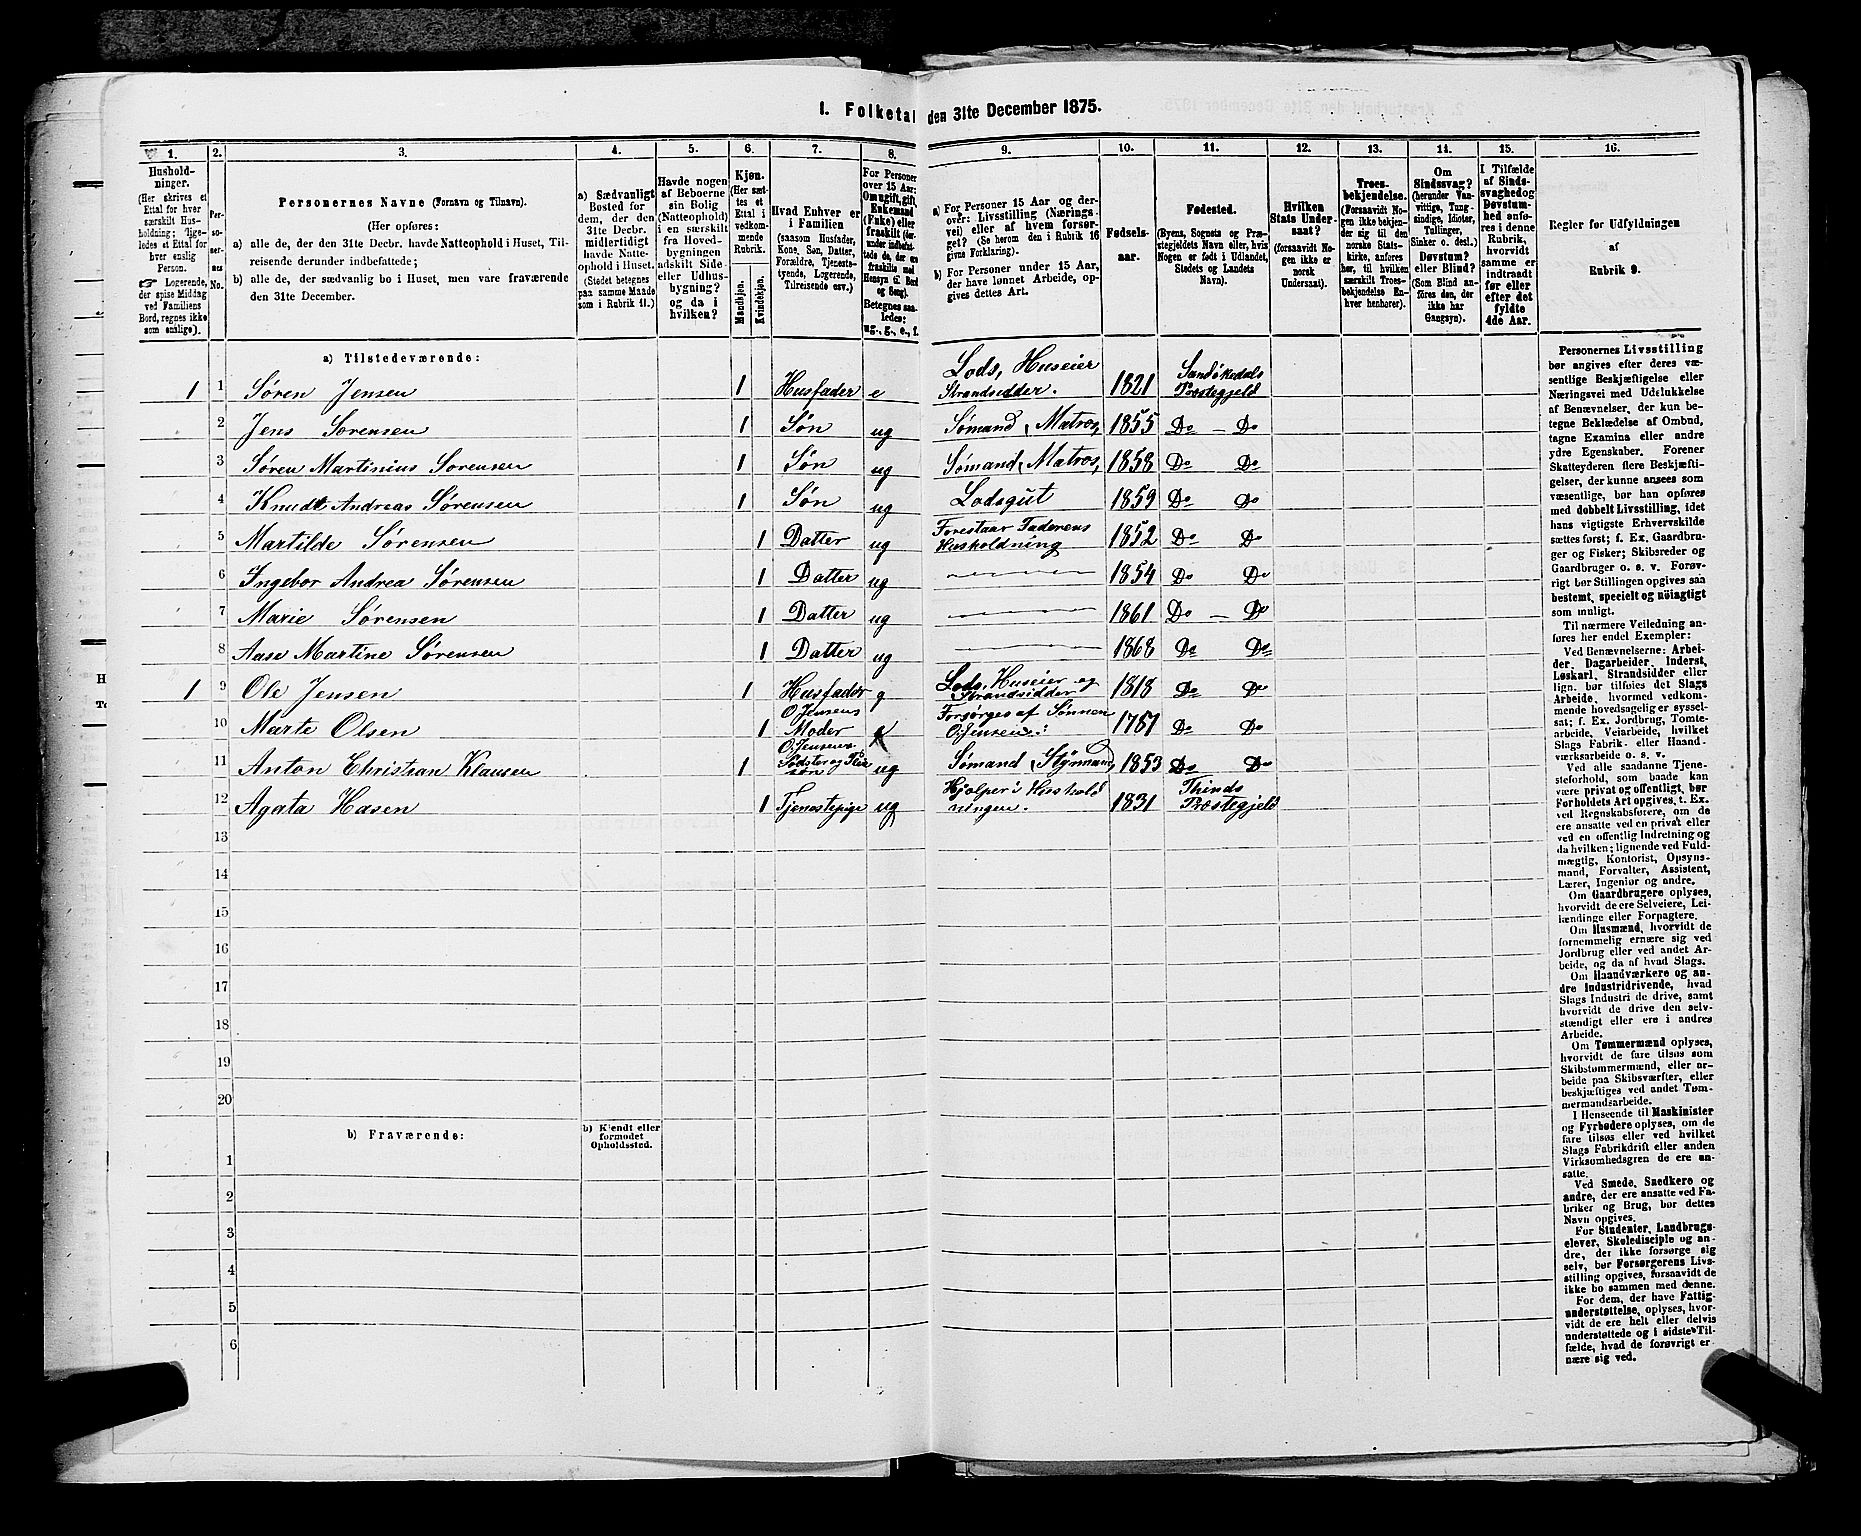 1. Folketal den 31te December 1875.
1. 2. 3. 4. 5. 6. 7. 8. 9. 10. 11. 12. 13. 14. 15. 16.
Husholdninger.
(Her skrives et
Ettal for hver
særskilt Husholdning; ligeledes
et Ettal for
hver enslig
Person.
Logerende,
der spise Middag
ved Familiens
Bord, regnes ikke
som enslige).
Personernes No.
Personernes Navne (Fornavn og Tilnavn).
(Her opføres:
a) alle de, der den 31te Decbr. havde Natteophold i Huset, Tilreisende
derunder indbefattede;
b) alle de, der sædvanlig bo i Huset, men vare fraværende
den 31te December.
a) Sædvanligt
Bosted for
dem, der den
31te Decbr.
midlertidigt
havde Natteophold
i Huset.
(Stedet betegnes
paa samme Maade
som i Rubrik 11.)
Havde nogen
af Beboerne
sin Bolig
(Natteophold)
i en særskilt
fra Hovedbygningen
adskilt Side-
eller Udhusbygning?
og da i
hvilken?
Kjøn.
(Her sættes
et
Ettal i
vedkommende
Rubrik.
Mandkjøn.
Kvindekjøn.
Hvad Enhver er
i Familien
(saasom Husfader,
Kone, Søn, Datter,
Forældre, Tjenestetyende,
Logerende,
Tilreisende osv.)
For Personer
over 15 Aar:
Om ugift, gift,
Enkemand
(Enke) eller
fraskilt
Betegnes saaledes:
ug., g., e., f.
a) For Personer 15 Aar og derover:
Livsstilling (Næringsvei)
eller af hvem forsørget?
(Se herom den i Rubrik 16
givne Forklaring).
b) For Personer under 15 Aar,
der have lønnet Arbeide, opgives
dettes Art.
Fødselsaar.
Fødested.
(Byens, Sognets og Præstegjeldets
Navn eller, hvis
Nogen er født i Udlandet,
Stedets og Landets
Navn).
Hvilken
Stats Undersaat?
(forsaavidt Nogen
ikke er
norsk
Undersaat).
Troesbekjendelse.
(Forsaavidt Nogen
ikke bekjender
sig til den
norske Statskirke,
anføres
her, til hvilken
særskilt Troesbekjendelse
Enhver
henhører).
Om
Sindssvag?
(herunder Vanvittige,
Tungsindige,
Idioter,
Tullinger,
Sinker o. desl.)
Døvstum?
eller Blind?
(Som Blind anføres
den, der
ikke har
Gangsyn).
I Tilfælde
af Sindssvaghed
og
Døvstumhed
anføres
i denne
Rubrik,
hvorvidt
samme er
indtraadt
før eller
efter det
fyldte
4de Aar.
Regler for Udfyldningen
af
Rubrik 9.
a) Tilstedeværende:
1 1 Søren Jensen 1 Husfader e Lods, Huseier Strandsidder. 1821 Sandøkedals Præstegjeld
2 Jens Sorensen 1 Søn ug Sømand, Matros, 1855 Do — Do
3 Søren Martinius Sorensen 1 Søn ug Sømand, Matros, 1858 Do Do
4 Knudt Andreas Sørensen 1 Søn ug Lodsgut 1859 Do Do
5 Martilde Sørensen 1 Datter ug Forestaar Faderens Husholdning 1852 Do Do
6 Ingebor Andrea Sørensen 1 Datter ug — 1854 Do Do
7 Marie Sørensen 1 Datter ug — 1861 Do — Do
8 Aase Martine Sørensen 1 Datter ug — 1868 Do Do
1 9 Ole Jensen 1 Husfader g Lods, Huseier og Strandsidder 1818 Do Do
10 Marte Olsen 1 O. Jensens Moder e Forsørges af Sønnen O. Jensen. 1787 Do Do
11 Anton Christian Klausen 1 O. Jensens ug Sømand, Styrmand, 1853 Do Do
12 Agata Hasen 1 Tjenestepige ug Hjelper i Husholdningen. 1831 Præstegjeld
13
14
15
16
17
18
19
20
b) Fraværende:
b) Kjendt eller
formodet
Opholdssted.
1
2
3
4
5
6
Personernes Livsstilling
bør angives efter deres væsentlige
Beskjæftigelse eller
Næringsvei med Udelukkelse
af Benævnelser, der kun betegne
Beklædelse af Ombud,
tagne Examina eller andre
ydre Egenskaber. Forener
Skatteyderen flere Beskjæftigelser,
der kunne ansees som
væsentlige, bør han opføres
med dobbelt Livsstilling, idet
hans vigtigste Erhvervskilde
sættes først; f. Ex. Gaardbruger
og Fisker; Skibsreder og
Gaardbruger o. s. v. Forøvrigt
bør Stillingen opgives saa
bestemt, specielt og nøiagtigt
som muligt.
Til nærmere Veiledning anføres
her endel Exempler:
Ved Benævnelserne: Arbeider,
Dagarbeider, Inderst,
Løskarl, Strandsidder eller
lign. bør tilføies det Slags
Arbeide, hvormed vedkommende
hovedsagelig er sysselsat;
f. Ex. Jordbrug, Tomtearbeide,
Veiarbeide, hvilket
Slags Fabrik- eller Haandværksarbeide
o. s. v.
Ved alle saadanne Tjenesteforhold,
som baade kan
være privat og offentligt, bør
Forholdets Art opgives, t. Ex.
ved Regnskabsførere, om de
ere ansatte ved en privat eller
ved en offentlig Indretning og
da hvilken; lignende ved Fuldmægtig,
Kontorist, Opsynsmand,
Forvalter, Assistent,
Lærer, Ingeniør og andre.
Om Gaardbrugere oplyses,
hvorvidt de ere Selveiere, Leilændinge
eller Forpagtere.
Om Husmænd, hvorvidt de
fornemmelig ernære sig ved
Jordbrug eller ved andet Arbeide,
og da af hvad Slags.
Om Haandværkere og andre
Industridrivende, hvad
Slags Industri de drive, samt
hvorvidt de drive den selvstændigt
eller ere i andres
Arbeide.
Om Tømmermænd oplyses,
hvorvidt de fare tilsøs som
Skibstømmermænd, eller arbeide
paa Skibsværfter, eller
beskjæftiges ved andet Tømmermandsarbeide.
I Henseende til Maskinister
og Fyrbødere oplyses, om de
fare tilsøs eller ved hvilket
Slags Fabrikdrift eller anden
Virksomhedsgren de ere ansatte.
Ved Smede, Snedkere og
andre, der ere ansatte ved Fabriker
og Brug, bør dettes
Navn opgives.
For Studenter, Landbrugselever,
Skoledisciple og andre,
der ikke forsørge sig
selv, bør Forsørgerens Livsstilling
opgives, forsaavidt de
ikke bo sammen med denne.
For dem, der have Fattigunderstøttelse,
oplyses, hvorvidt
de ere helt eller delvis
understøttede og i sidste Tilfælde,
hvad de forøvrigt ernære
sig ved.